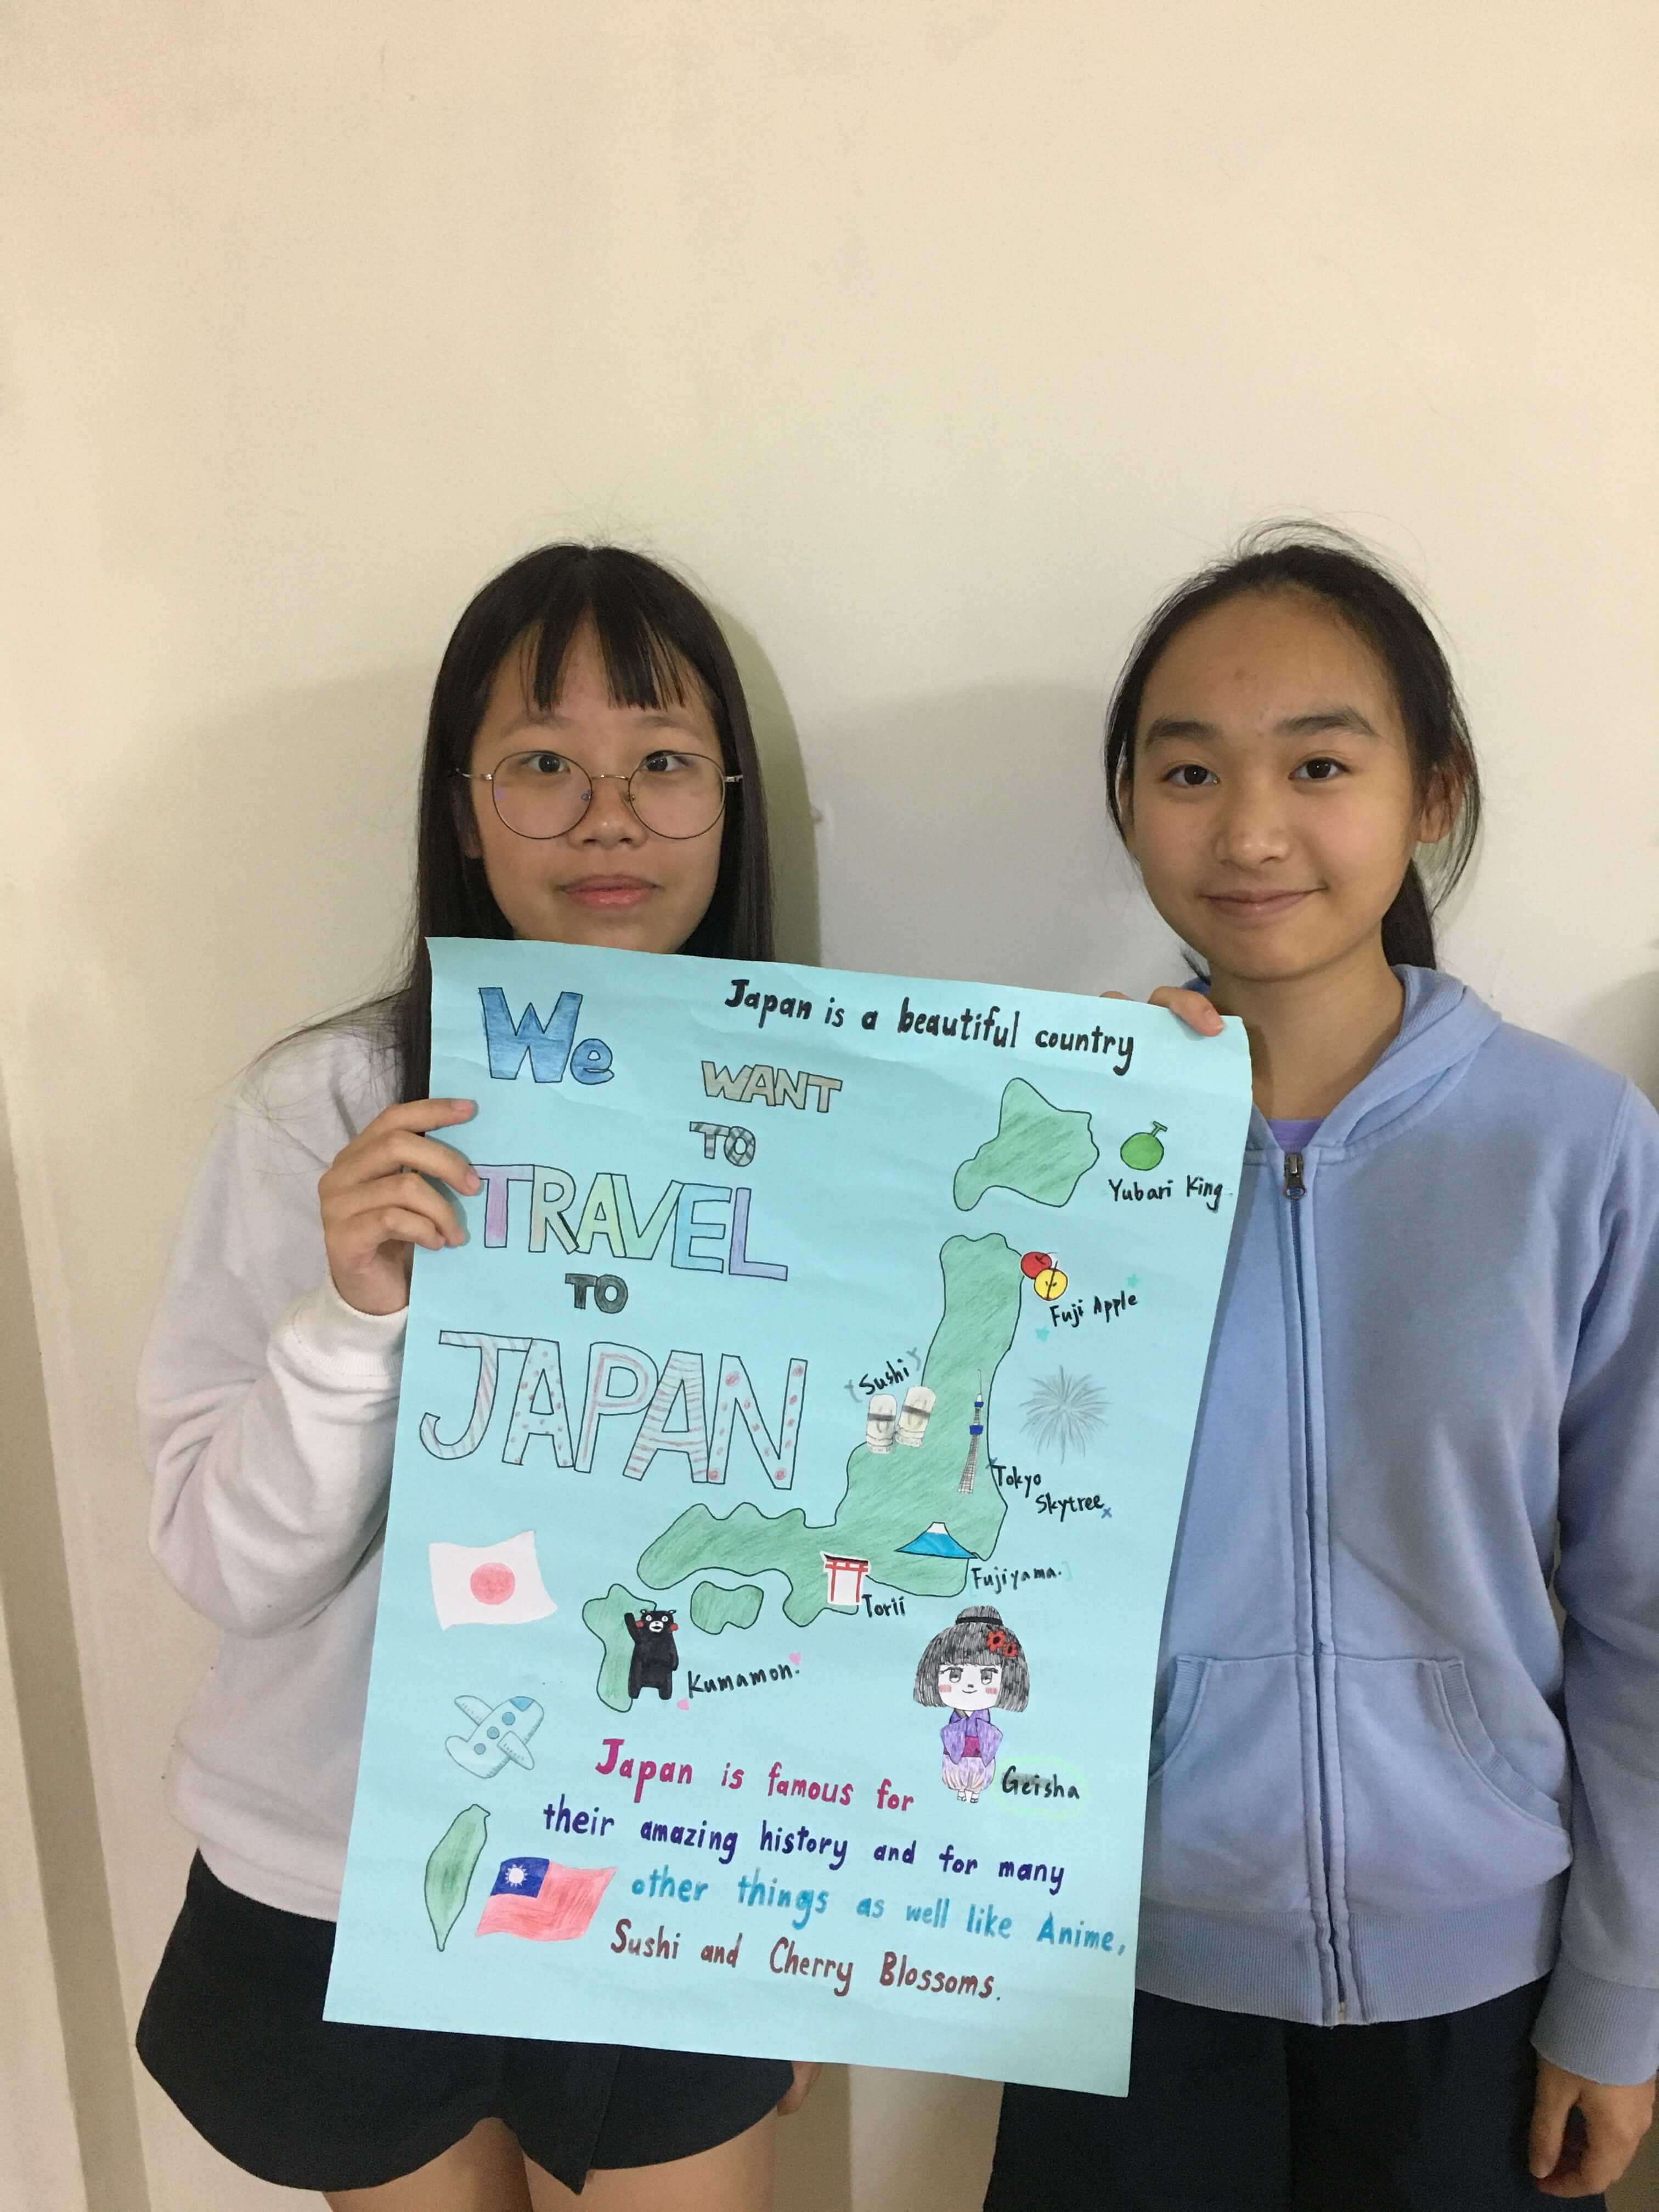 Japan is a beautiful country
We
WANT
TO
TRAVEL
TO
JAPAN
Yubari King
Fuji Apple
Sushi
Tokyo
Skytree
Fujiyama.
Torii
Kumamon.
Geisha
Japan is famous for
their amazing history and for many
other things as well like Anime,
Sushi and Cherry Blossoms.